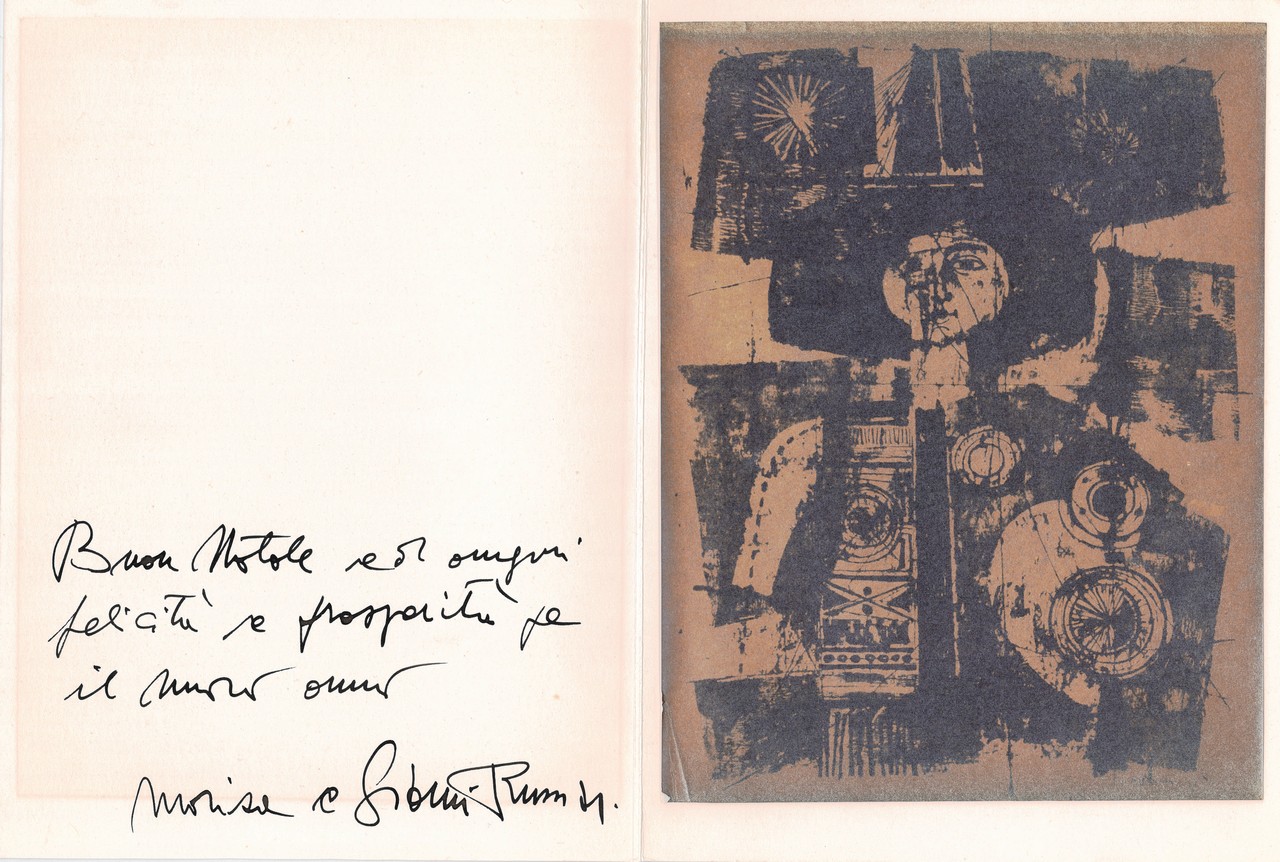 Buon Natale ed auguri
felicità e prosperità pe
il nuovo anno
Marisa e Gianni